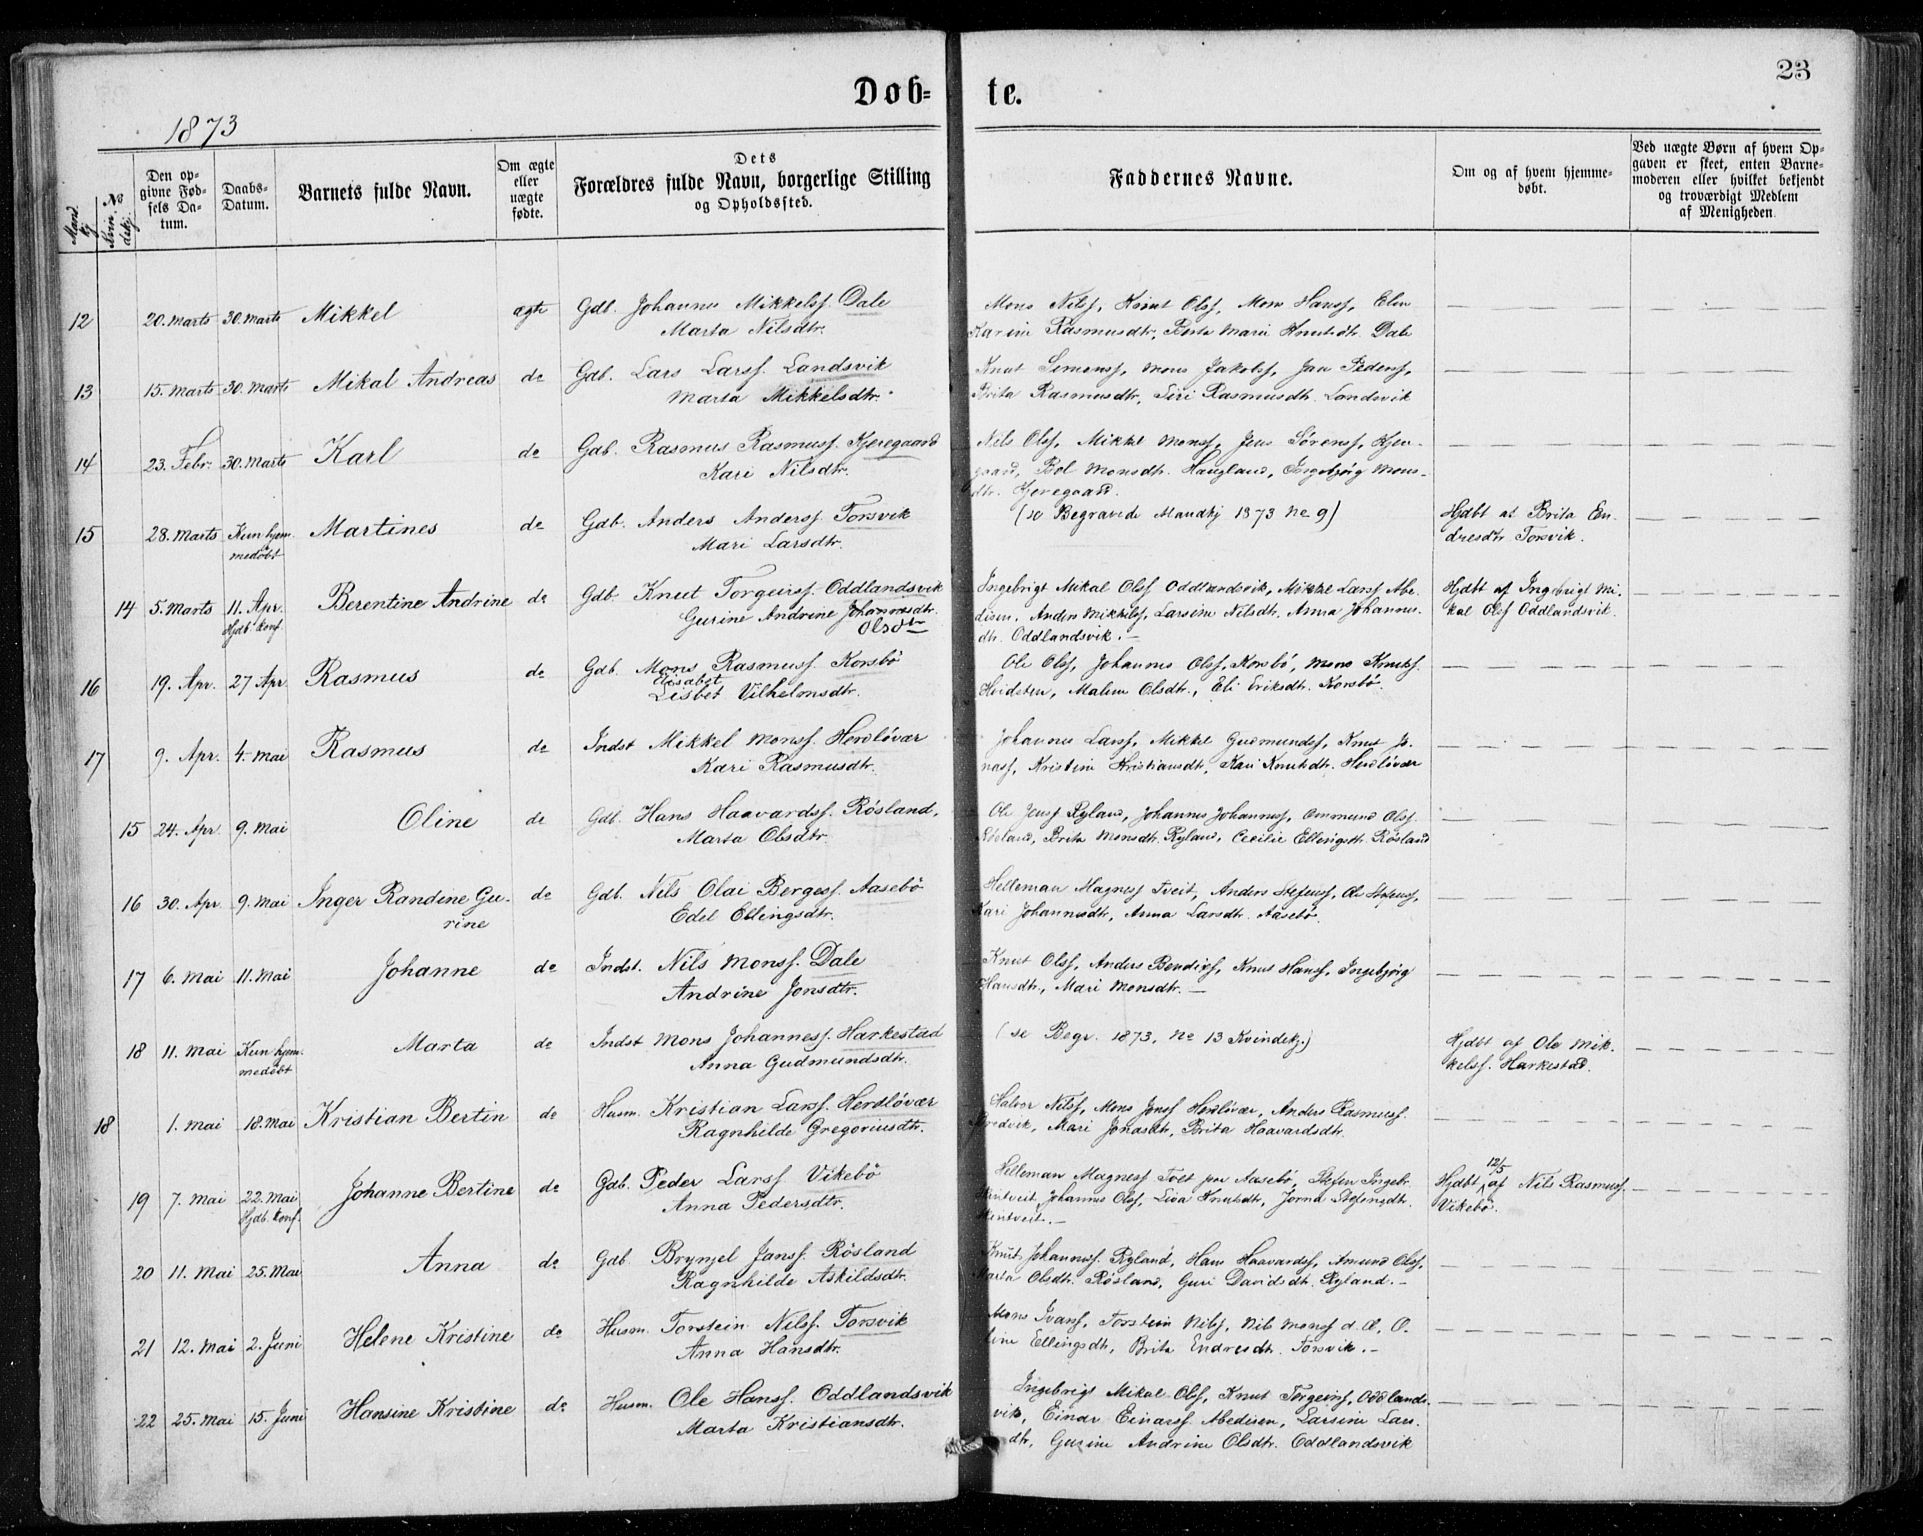 Døb-
te.
23
1873
Mand kj.
No
Kvin- dekj.
Den op-
givne Fød-
sels Da-
tum.
Daabs-
Datum.
Barnets fulde Navn.
Om ægte
eller
uægte
fødte.
Dets
Forældres fulde Navn, borgerlige Stilling
og Opholdssted.
Faddernes Navne.
Om og af hvem hjemme-
døbt.
Ved uægte Børn af hvem Op-
gaven er skeet, enten Barne-
moderen eller hvilket bekjendt
og troværdigt Medlem
af Menigheden.
12 20. Marts 30. Marts Mikkel ægte Gdb. Johannes Mikkelss. Dale
Marta Nilsdtr.
Mons Nilss, Knut Olss, Mons Hanss, Elen
Karine Rasmusdtr, Berta Marie Knutsdtr. Dale
13 15. Marts 30. Marts Mikal Andreas do Gdb. Lars Larss. Landsvik
Marta Mikkelsdtr.
Knut Simonss, Mons Jakobss, Jan Pederss,
Brita Rasmusdtr, Siri Rasmusdtr. Landsvik
14 23. Febr. 30. Marts Karl do Gdb. Rasmus Rasmuss. Kjeregaard
Kari Nilsdtr.
Nils Olss, Mikkel Monss, Jens Sørenss, Kjere-
gaard, Bol Monsdtr. Haugland, Ingebjørg Mons-
dtr. Kjeregaard.
15 28. Marts Kun hjem-
medøbt Martines do Gdb. Anders Anderss. Torsvik
Mari Larsdtr.
(se Begravede Mandkj 1873 No 9)
Hjdbt af Brita En-
dresdtr Torsvik.
14 5. Marts 11. Apr.
Hjdb. konf. Berentine Andrine do Gdb. Knut Torgeirss. Oddlandsvik
Gurine Andrine Johannesdtr.
Olsdtr
Ingebrigt Mikal Olss Oddlandsvik, Mikkel Larss Abe-
disen, Anders Mikkelss, Larsine Nilsdtr, Anna Johannes-
dtr. Oddlandsvik.
Hjdbt af Ingebrigt Mi-
kal Olss Oddlandsvik.
16 19. Apr. 27 Apr. Rasmus do Gdb. Mons Rasmuss. Korsbø
Elisabet
Lisbet Vilhelmsdtr.
Ole Olss, Johannes Olss, Korsbø, Mons Knutss.
Hvidsten, Malene Olsdtr., Eli Eriksdtr. Korsbø.
17 9. Apr. 4. Mai Rasmus do Indst Mikkel Monss. Herdløvær
Kari Rasmusdtr.
Johannes Larss, Mikkel Gudmundss, Knut Jo-
nass, Kristine Kristiansdtr, Kari Knutsdtr. Herdløvær
15 24. Apr. 9. Mai Oline do Gdb. Hans Haavardss. Røsland,
Marta Olsdtr.
Ole Jenss Ryland, Johannes Johanness, Ommund Olss.
Røsland, Brita Monsdtr. Ryland, Cecilie Ellingsdtr. Røsland
16 30. Apr. 9. Mai Inger Randine Gu-
rine do Gdb. Nils Olai Bergess. Aasebø
Edel Ellingsdtr.
Helleman Magness Tveit, Anders Stefenss, Ole Stefenss,
Kari Johannesdtr, Anna Larsdtr. Aasebø.
17 6. Mai 11. Mai Johanne do Indst. Nils Monss. Dale
Andrine Jonsdtr.
Knut Olss, Anders Bendixs, Knut Hanss, Ingebjørg
Hansdtr., Mari Monsdtr.
18 11. Mai Kun hjem-
medøbt Marta do Indst Mons Johanness. Harkestad
Anna Gudmundsdtr.
(se Begr. 1873, No 13 Kvindekj.)
Hjdbt af Ole Mik-
kelss. Harkestad.
18 1. Mai 18. Mai Kristian Bertin do Husm. Kristian Larss. Herdløvær
Ragnhilde Gregoriusdtr.
Halvor Nilss, Mons Jonss Herdløvær, Anders Rasmuss.
Mari Jonasdtr, Brita Haavardsdtr.
19 7. Mai 22. Mai
Hjdb. konf. Johanne Bertine do Gdb. Peder Larss Vikebø
Anna Pedersdtr.
Helleman Magness Toet paa Aasebø, Stefen Ingebr.
Johannes Olss, Liva Knutsdtr, Jorna Stefensdtr.
Hjdbt 12/5 af Nils Rasmuss.
Vikebø.
20 11. Mai 25. Mai Anna do Gdb. Brynjel Janss. Røsland
Ragnhilde Askildsdtr.
Knut Johanness. Ryland, Hans Haavardss, Amund Olss,
Marta Olsdtr. Røsland, Guri Davidsdtr. Ryland.
21 12. Mai 2. Juni Helene Kristine do Husm. Torstein Nilss. Torsvik
Anna Hansdtr.
Mons Ivarss, Torstein Nilss, Nils Monss d. Æ, O-
line Ellingsdtr, Brita Endresdtr. Torsvik.
22 25. Mai 15. Juni Hansine Kristine do Husm. Ole Hanss. Oddlandsvik
Marta Kristiansdtr.
Ingebrigt Mikal Olss, Knut Torgeirss, Oddlands-
vik, Einar Einarss. Abedisen, Larsine Lars-
dtr, Gurine Andrine Olsdtr. Oddlandsvik